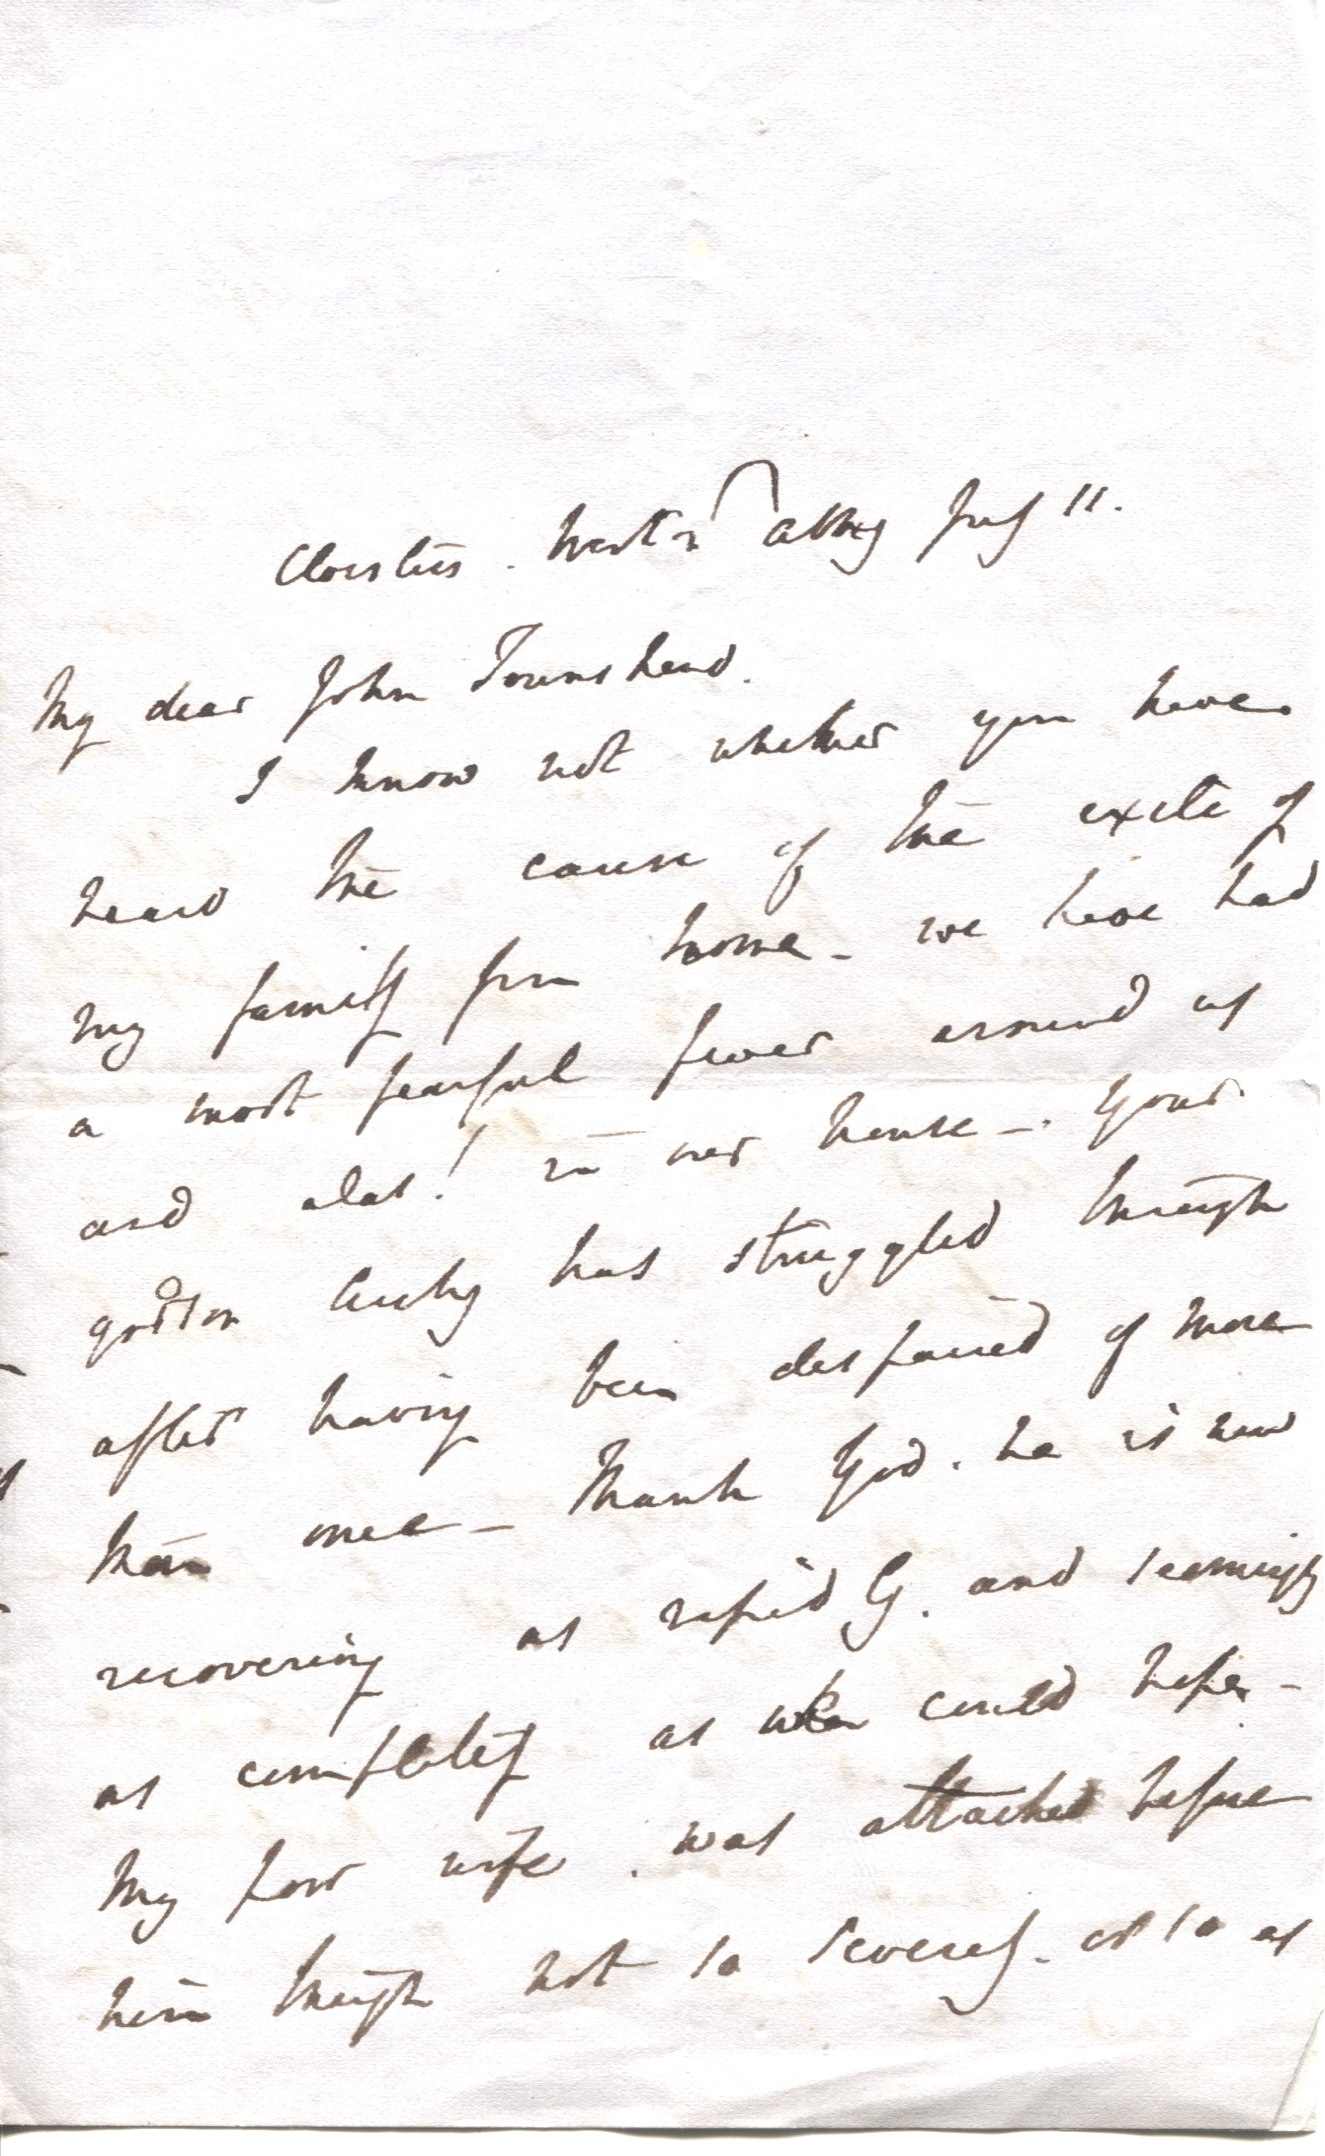 Cloisters. Westr Abbey July 11.
My dear John Townshend.
I know not whether you have
heard the cause of the exile of
my family from home - we have had
a most fearful fever around us
and alas! in our house -. Your
godson has struggled through
after having been despaired of more
than once - Thank God. he is now
recovering as rapidly. and seemingly
as completely as we could hope -
My poor wife. was attacked before
him though not so severely. or so as